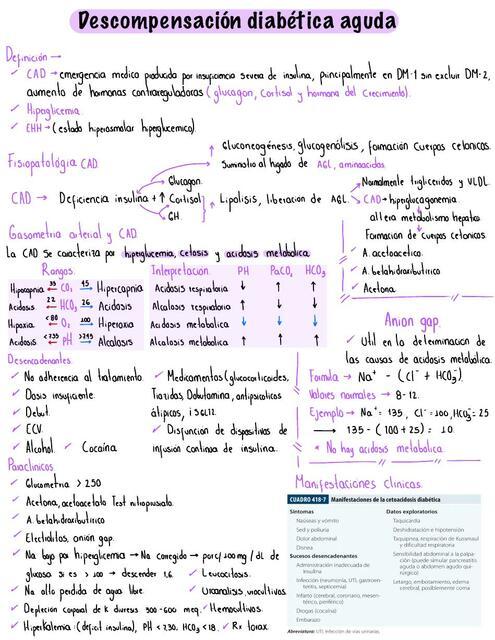 Descompensación diabética aguda
Definición →
✓ CAD → emergencia medica producida por insuficiencia severa de insulina, principalmente en DM-1 sin excluir DM-2,
aumento de hormonas contrareguladoras (glucagon, Cortisol y hormona del crecimiento).
✓ Hiperglicemia.
✓ EHH → (estado hiperosmolar hiperglucemico).
↑ Gluconeogénesis, glucogenólisis, formación cuerpos cetonicos.
Suministro al higado de AGL, aminoacidos.
Fisiopatología CAD
CAD → Deficiencia insulina + ↑ Glucagon. Cortisol GH. } ↑ Lipolisis, liberación de AGL.
Normalmente trigliceridos y VLDL.
CAD → hiperglucagonemia.
altera metabolismo hepatico
Formación de cuerpos cetonicos.
✓ A. acetoacetico.
✓ A. betahidroxibutirico
✓ Acetona.
Gasometria arterial y CAD
La CAD se caracteriza por hiperglucemia, cetosis y acidosis metabolica.
Rangos.
Hipocapnia 35 ← CO₂ 45 → Hipercapnia
Acidosis 22 ← HCO₃ 26 → Acidosis
Hipoxia <80 ← O₂ 100 → Hiperoxia
Acidosis <7.35 ← PH >7.45 → Alcalosis
Interpretación. PH PaCO₂ HCO₃
Acidosis respiratoria ↓ ↑ ↑
Alcalosis respiratoria ↑ ↓ ↓
Acidosis metabolica ↓ ↓ ↓
Alcalosis metabolica ↑ ↑ ↑
Anion gap.
✓ Util en la determinacion de
las causas de acidosis metabolica.
Formula → Na⁺ - (Cl⁻ + HCO₃⁻).
Valores normales → 8-12.
Ejemplo → Na⁺= 135, Cl⁻=100, HCO₃= 25
→ 135 - (100 + 25) = 10.
* No hay acidosis metabolica.
Desencadenantes.
✓ No adherencia al tratamiento.
✓ Dosis insuficiente.
✓ Debut.
✓ ECV.
✓ Alcohol. ✓ Cocaina.
✓ Medicamentos (glucocorticoides,
Tiazidas, Dobutamina, antipsicoticos
átipicos, iSGL2.
✓ Disfuncion de dispositivos de
infusión continua de insulina.
Paraclinicos
✓ Glucometria > 250
✓ Acetona, acetoacetato Test nitroprusiato.
✓ A. betahidroxibutirico
✓ Electrolitos, anion gap.
✓ Na bajo por hiperglicemia → Na corregido → por c/100 mg/dL de
glucosa si es > 100 → descender 1.6.
✓ Na alto perdida de agua libre
✓ Depleción corporal de K diuresis 300-600 meq.
✓ Hiperkalemia: (deficit insulina), PH < 7.30, HCO₃ < 18.
✓ Leucocitosis.
✓ Uroanalisis, urocultivos.
✓ Hemocultivos.
✓ Rx torax.
Manifestaciones clinicas.
CUADRO 418-7 Manifestaciones de la cetoacidosis diabética
Síntomas
Náuseas y vómito
Sed y poliuria
Dolor abdominal
Disnea
Sucesos desencadenantes
Administración inadecuada de
insulina
Infección (neumonía, UTI, gastroen-
teritis, septicemia)
Infarto (cerebral, coronario, mesen-
térico, periférico)
Drogas (cocaína)
Embarazo
Datos exploratorios
Taquicardia
Deshidratación e hipotensión
Taquipnea, respiración de Kussmaul
y dificultad respiratoria
Sensibilidad abdominal a la palpa-
ción (puede simular pancreatitis
aguda o abdomen agudo qui-
rúrgico)
Letargo, embotamiento, edema
cerebral, posiblemente coma
Abreviatura: UTI, infección de vías urinarias.